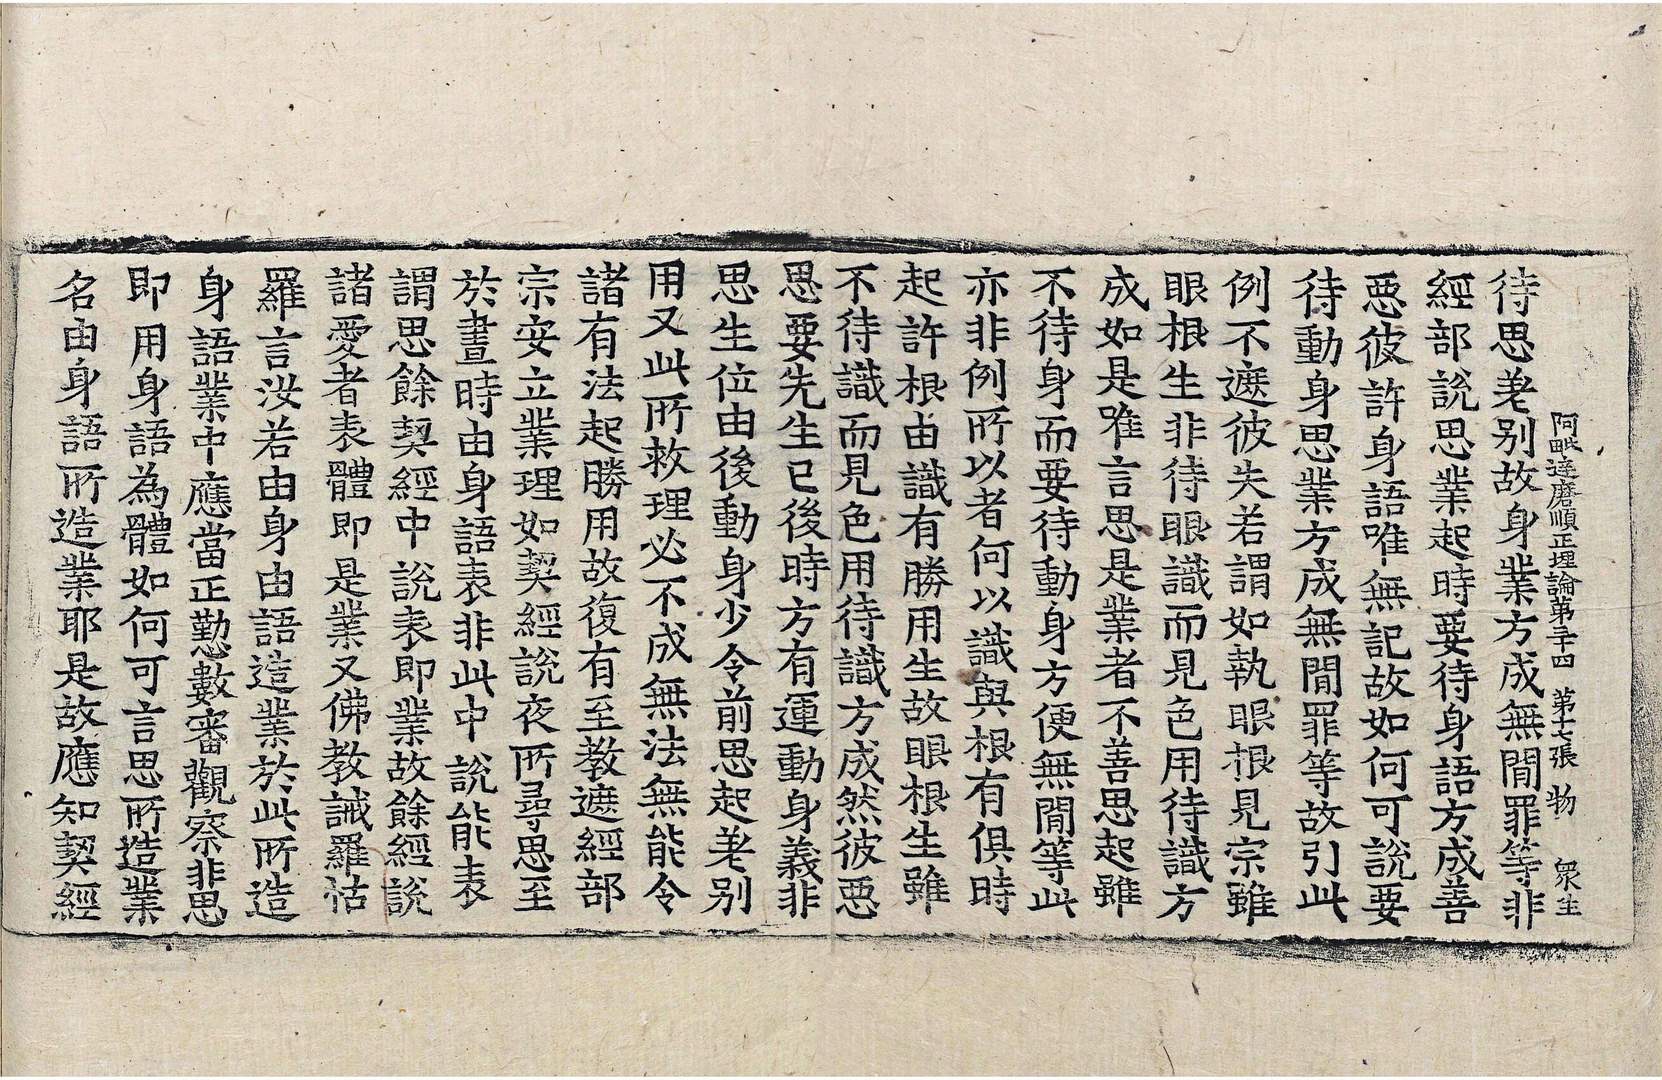 阿毗達磨順正理論第三十四 第十七張 物 衆生
待思差别故身業方成無間罪等非
經部說思業起時要待身語方成善
惡彼許身語唯無記故如何可說要
待動身思業方成無間罪等故引此
例不遮彼失若謂如執眼根見宗雖
眼根生非待眼識而見色用待識方
成如是唯言思是業者不善思起雖
不待身而要待動身方便無間等此
亦非例所以者何以識與根有俱時
起許根由識有勝用生故眼根生雖
不待識而見色用待識方成然彼惡
思要先生已後時方有運動身義非
思生位由後動身少令前思起差别
用又此所救理必不成無法無能令
諸有法起勝用故復有至教遮經部
宗安立業理如契經說夜所尋思至
於晝時由身語表非此中說能表
謂思餘契經中說表即業故餘經說
諸愛者表體即是業又佛教誡羅怙
羅言汝若由身由語造業於此所造
身語業中應當正勤數審觀察非思
即用身語為體如何可言思所造業
名由身語所造業耶是故應知契經